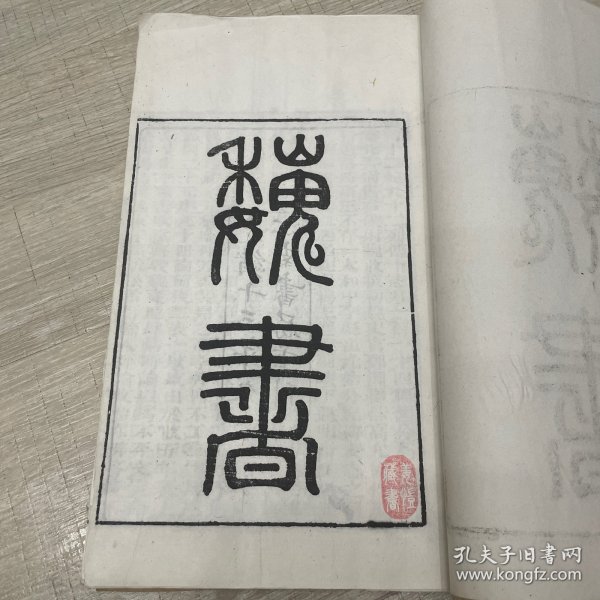 魏書
孔夫子旧书网
www.kongfz.com